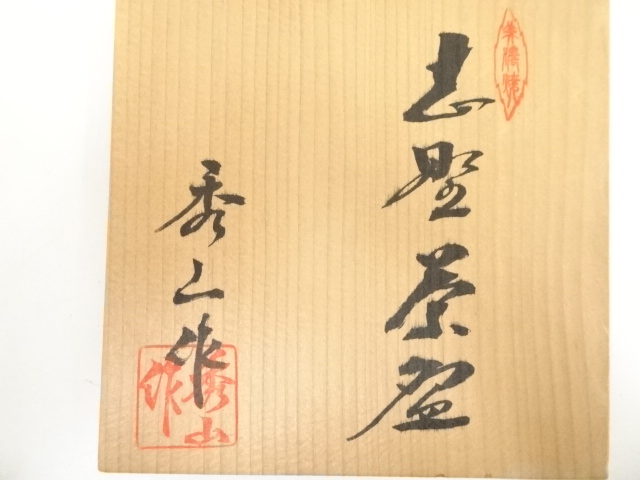 美濃焼
志野茶碗
秀山作
秀山作